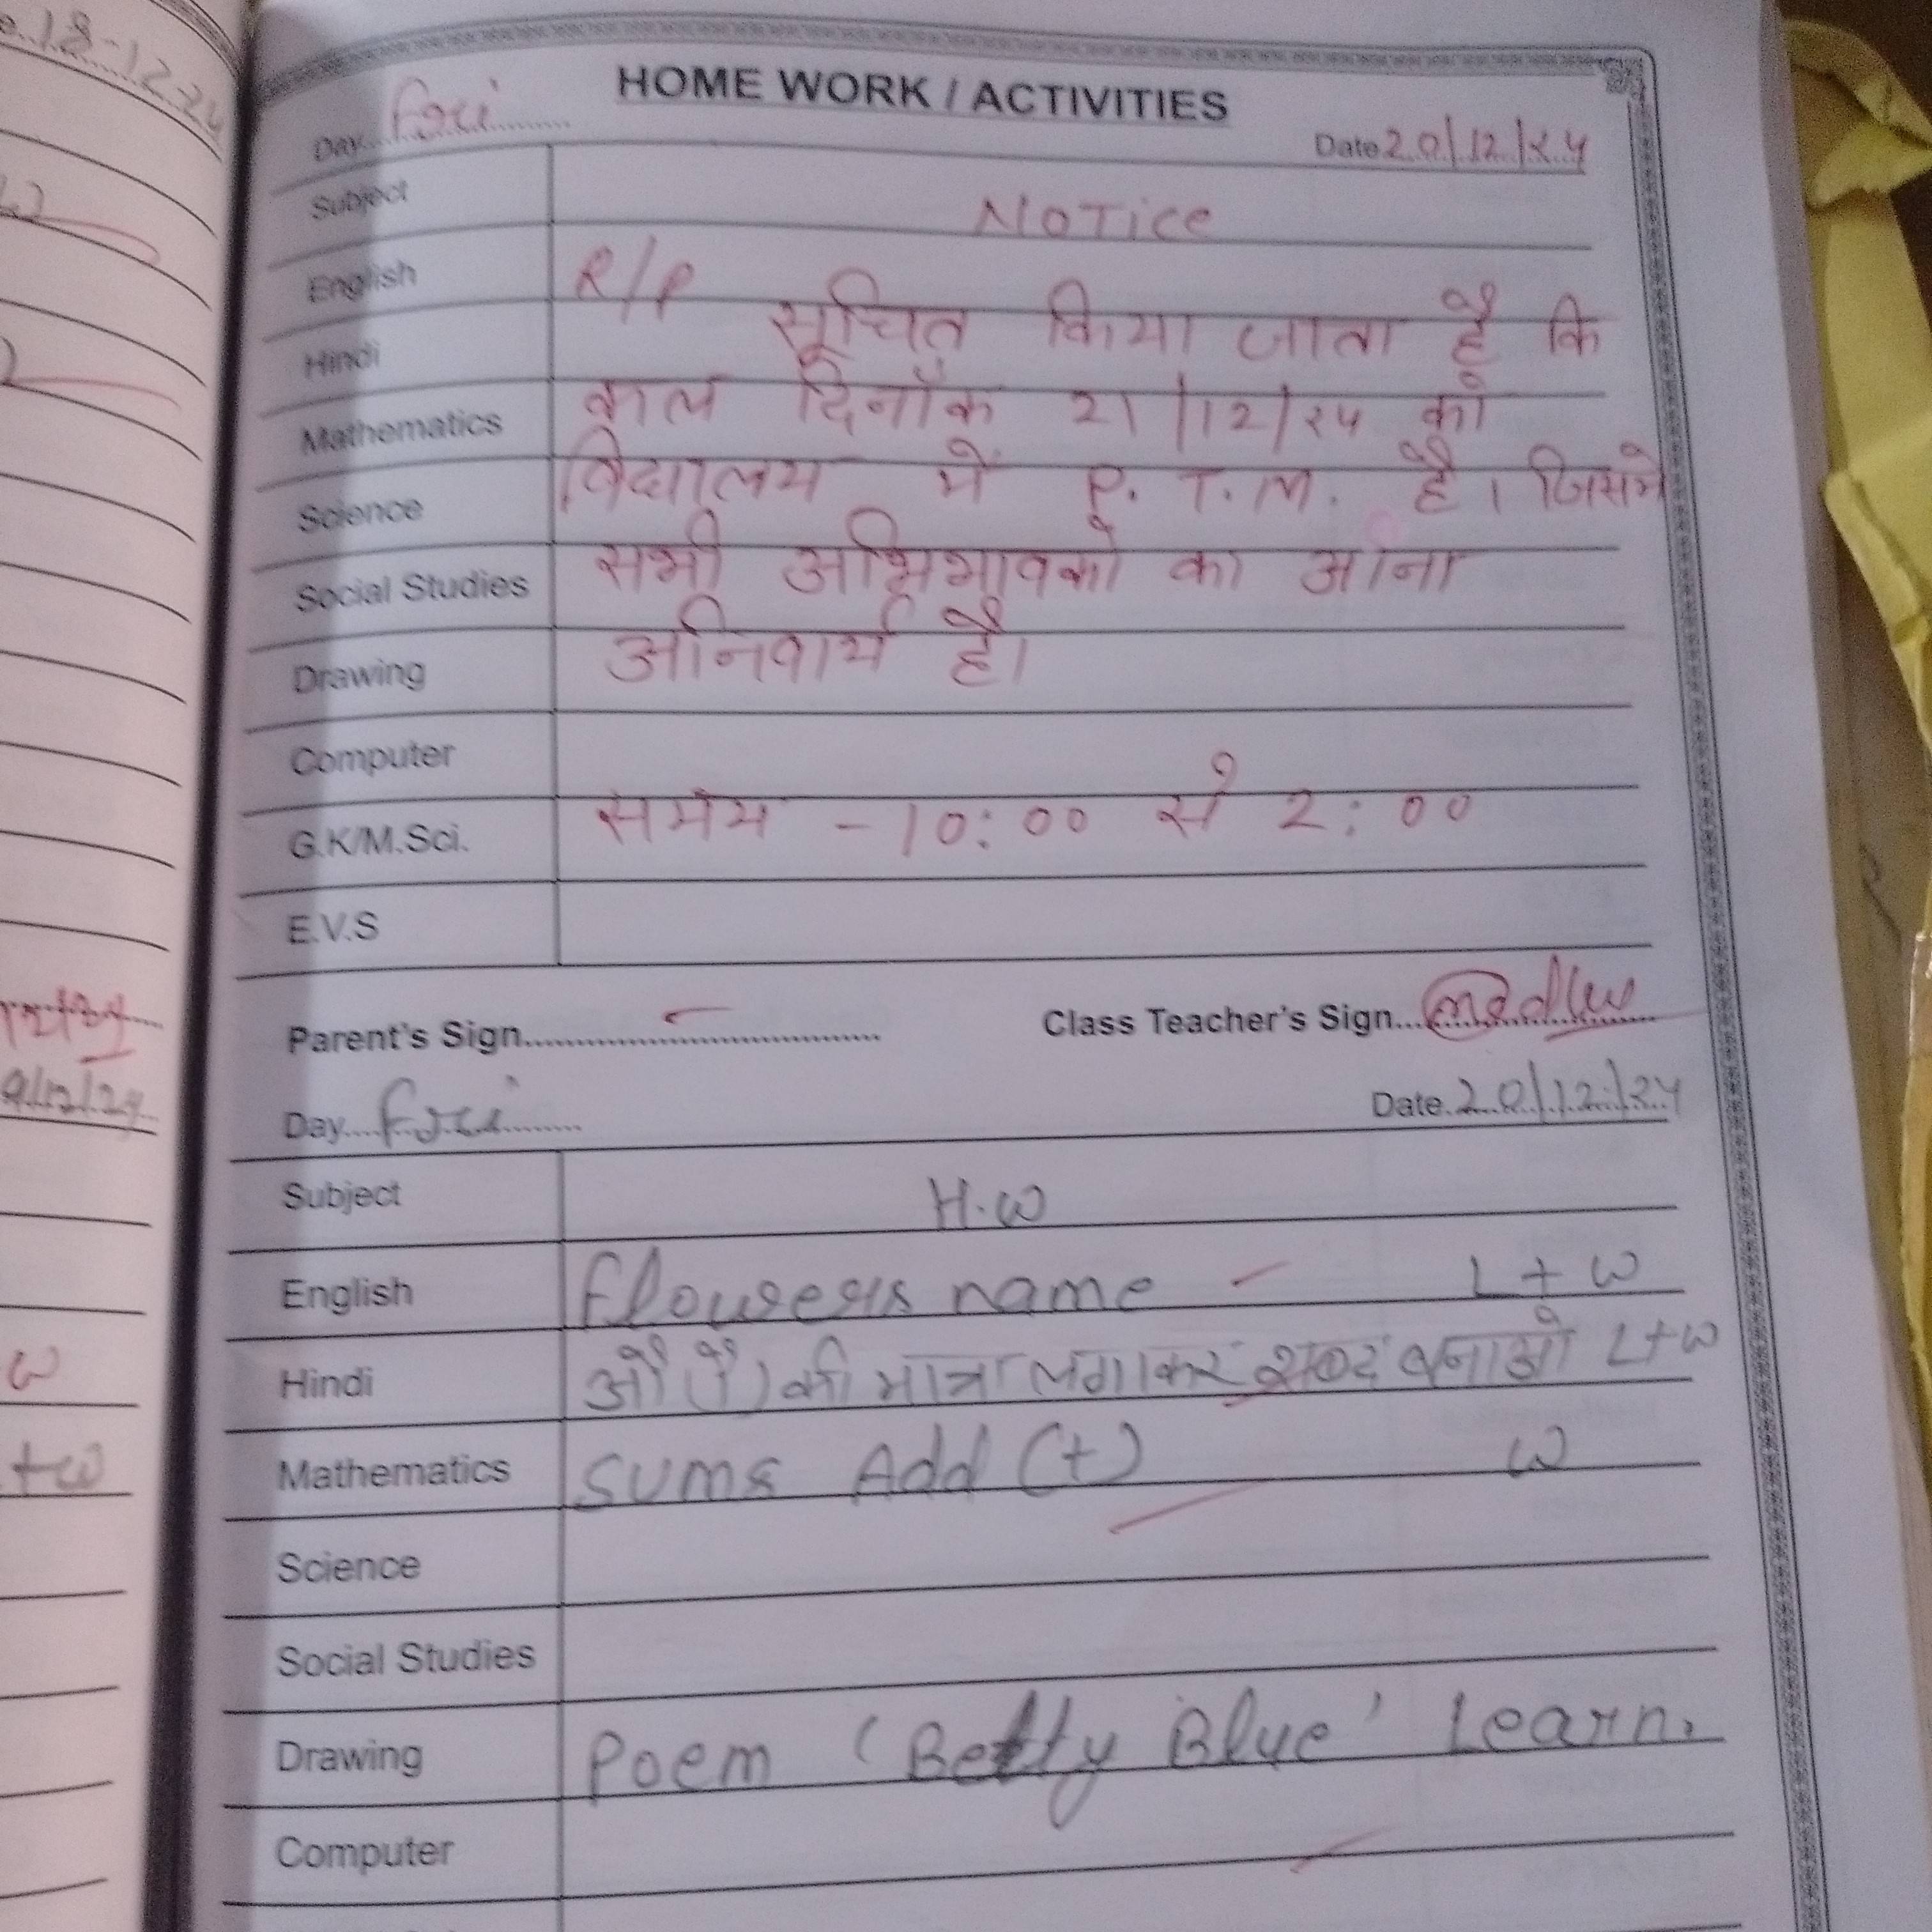 18-12-24
HOME WORK / ACTIVITIES
Day Fri Date 20/12/24
Subject NOTice
English R/P
Hindi सूचित किया जाता है कि
Mathematics कल दिनाँक 21/12/24 को
Science विद्यालय में P.T.M. है। जिसमे
Social Studies सभी अभिभावको का आना
Drawing अनिवार्य है।
Computer
G.K/M.Sci. समय - 10:00 से 2:00
E.V.S
Parent's Sign Class Teacher's Sign
Day Fri Date 20/12/24
Subject H.W
English Flowers name - L + W
Hindi औ (ौ) की मात्रा लगाकर शब्द बनाओ L+W
Mathematics Sums Add (+) W
Science
Social Studies
Drawing Poem 'Betty Blue' Learn.
Computer